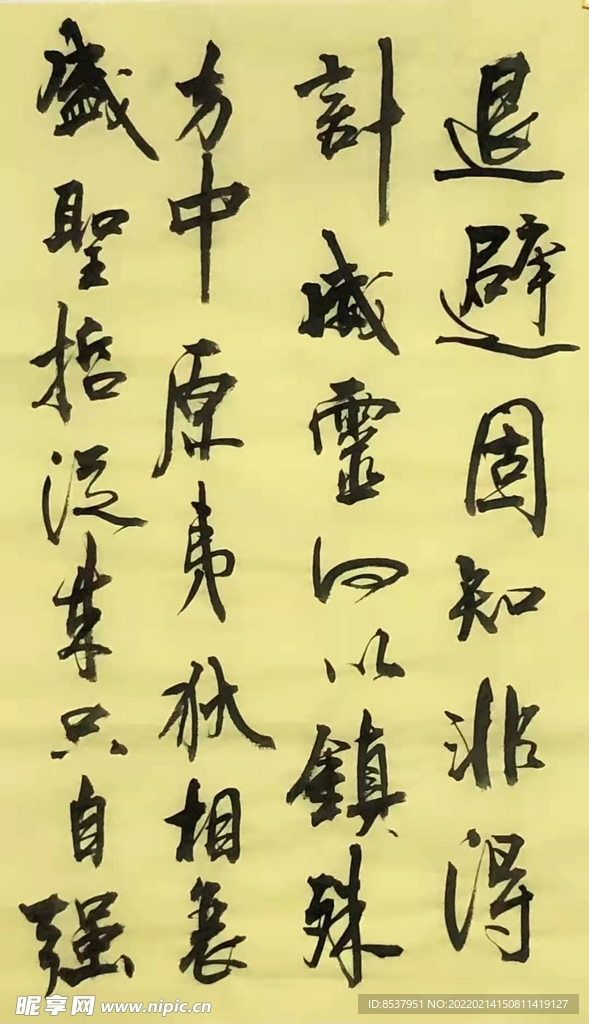 退避固知非得
計威靈何以鎮殊
方中原夷狄相衰
盛聖哲從来只自强
昵享网 www.nipic.cn
ID:8537951 NO:20220214150811419127